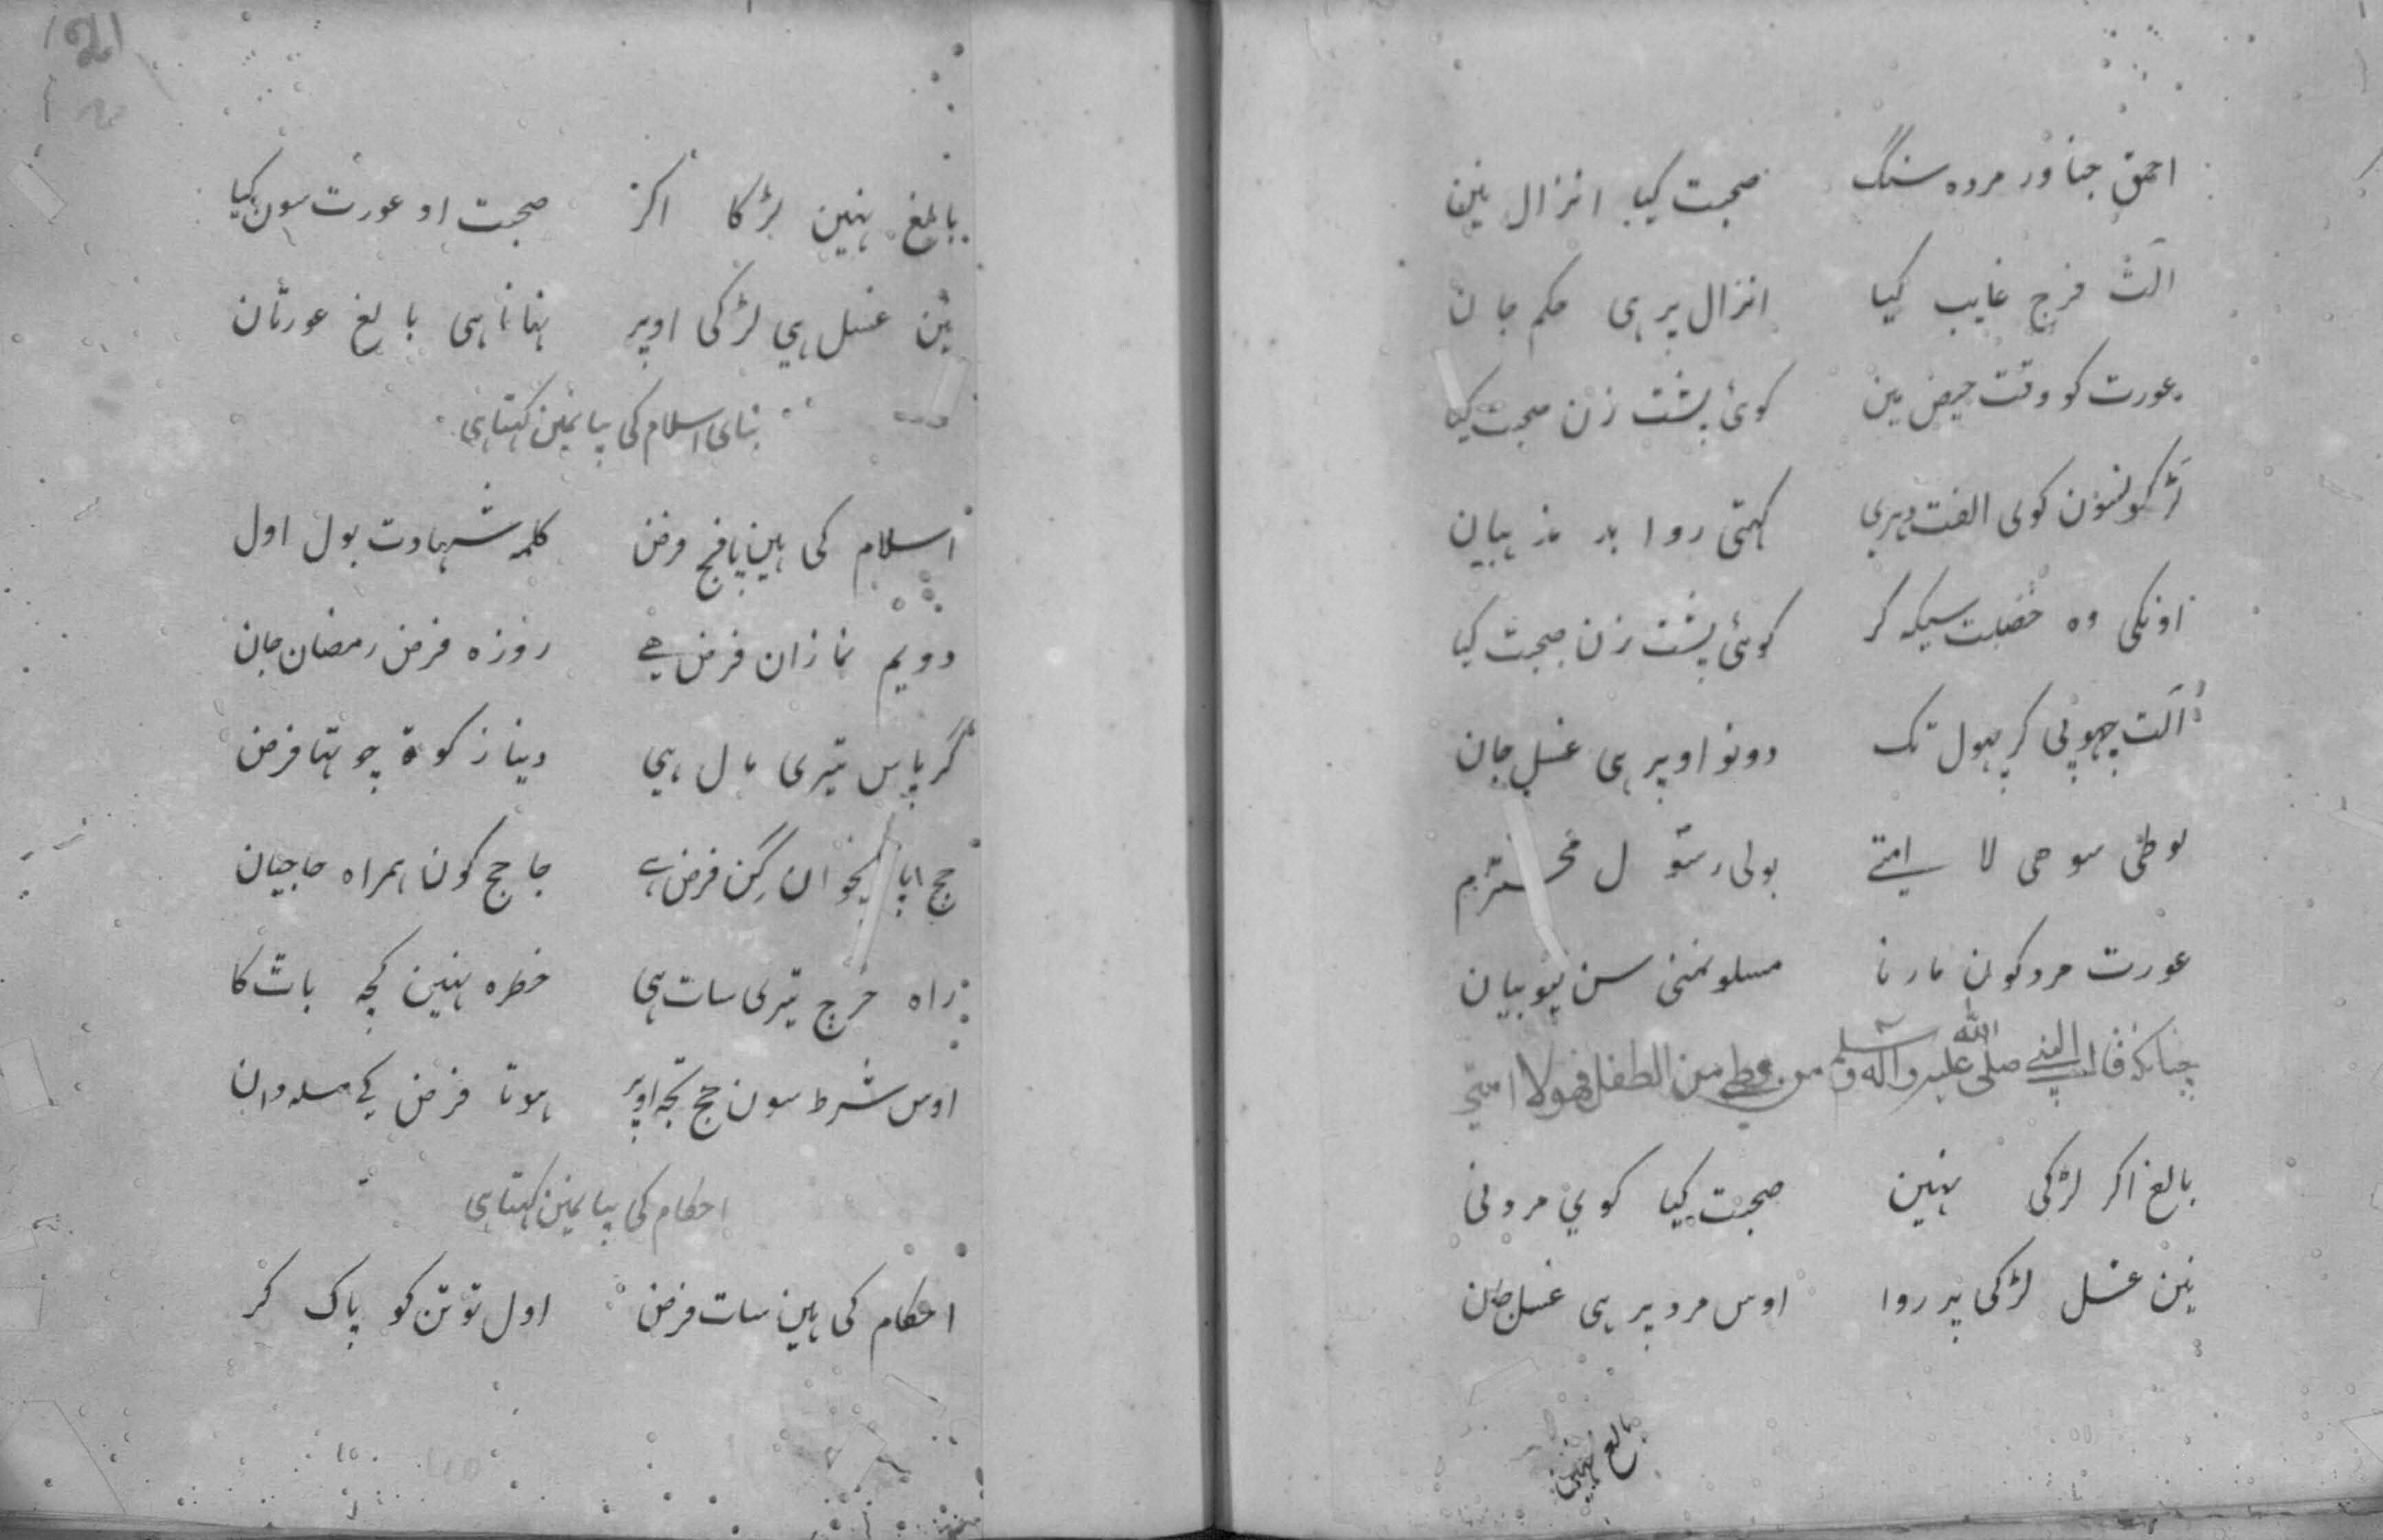 احمق جناور مرده سنگ صحبت کیا انزال نین
الت فرج غایب کیا انزال پر ہی حکم جان
عورت کو وقت حیض مین کوئ پشت زن صحبت کیا
کوی الفت دہری کہتی روا بد مذہبیان
اونکی وہ خصلت سیکہ کر کوئی پشت زن صحبت کیا
الت چہوپی کر پہول تک دونو اوپر ہی غسل جان
لوطی سو ھی لا امتے بولی رسول محترم
عورت مرد کون مارنا سن یو بیان
چنانکہ قال النبے صلی الله علیہ واله وسلم من وطی من الطفل فهو لا امتی
بالغ اکر لڑکی نہین صحبت کیا کوي مرد نی
نین غسل لڑکی پر روا اوس مرد پر ہی غسل جان
بالغ نہین
بالغ نہین لڑکا اکر صحبت او عورت سون کیا
نین غسل ہی لڑکی اوپر نہانا ہی بالغ عورتان
بنای اسلام کی بیانمین کہتا ہی
اسلام کی ہین پانچ فرض کلمہ شہادت بول اول
دویم نمازان فرض ہے روزہ فرض رمضان جان
گر پاس تیری مال ہی دینا زکوة چوتہا فرض
حج پانچوان گن فرض ہے جا حج کون ہمراہ حاجیان
راہ خرچ تیری سات ہی خطرہ نہین کچہ بات کا
اوس شرط سون حج تجہ اوپر ہوتا فرض
احکام کی بیانمین کہتا ہی
احکام کی ہین سات فرض اول تو تن کو پاک کر